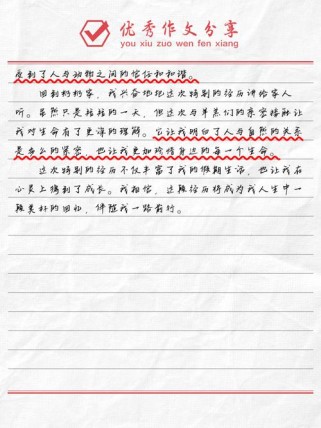 优秀作文分享
you xiu zuo wen fen xiang
感到了人与动物之间的信任和和谐。
回到奶奶家，我兴奋地把这次特别的经历讲给家人
听。虽然只是短短的一天，但这次与羊羔们的亲密接触让
我对生命有了更深的理解。它让我明白了人与自然的关系
是多么的紧密，也让我更加珍惜身边的每一个生命。
这次特别的经历不仅丰富了我的假期生活，也让我在
心灵上得到了成长。我相信，这段经历将成为我人生中一
段美好的回忆，伴随我一路前行。